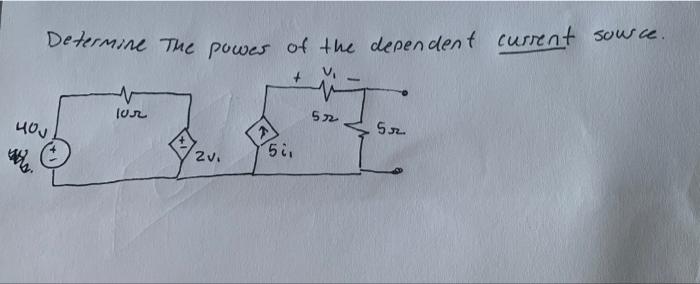 Determine The power of the dependent current source.
+ V₁ −
10Ω
5Ω
5Ω
40v
+
−
+
−
2v₁
5i₁